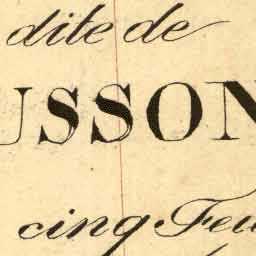 dite de
USSON
cinq Feu